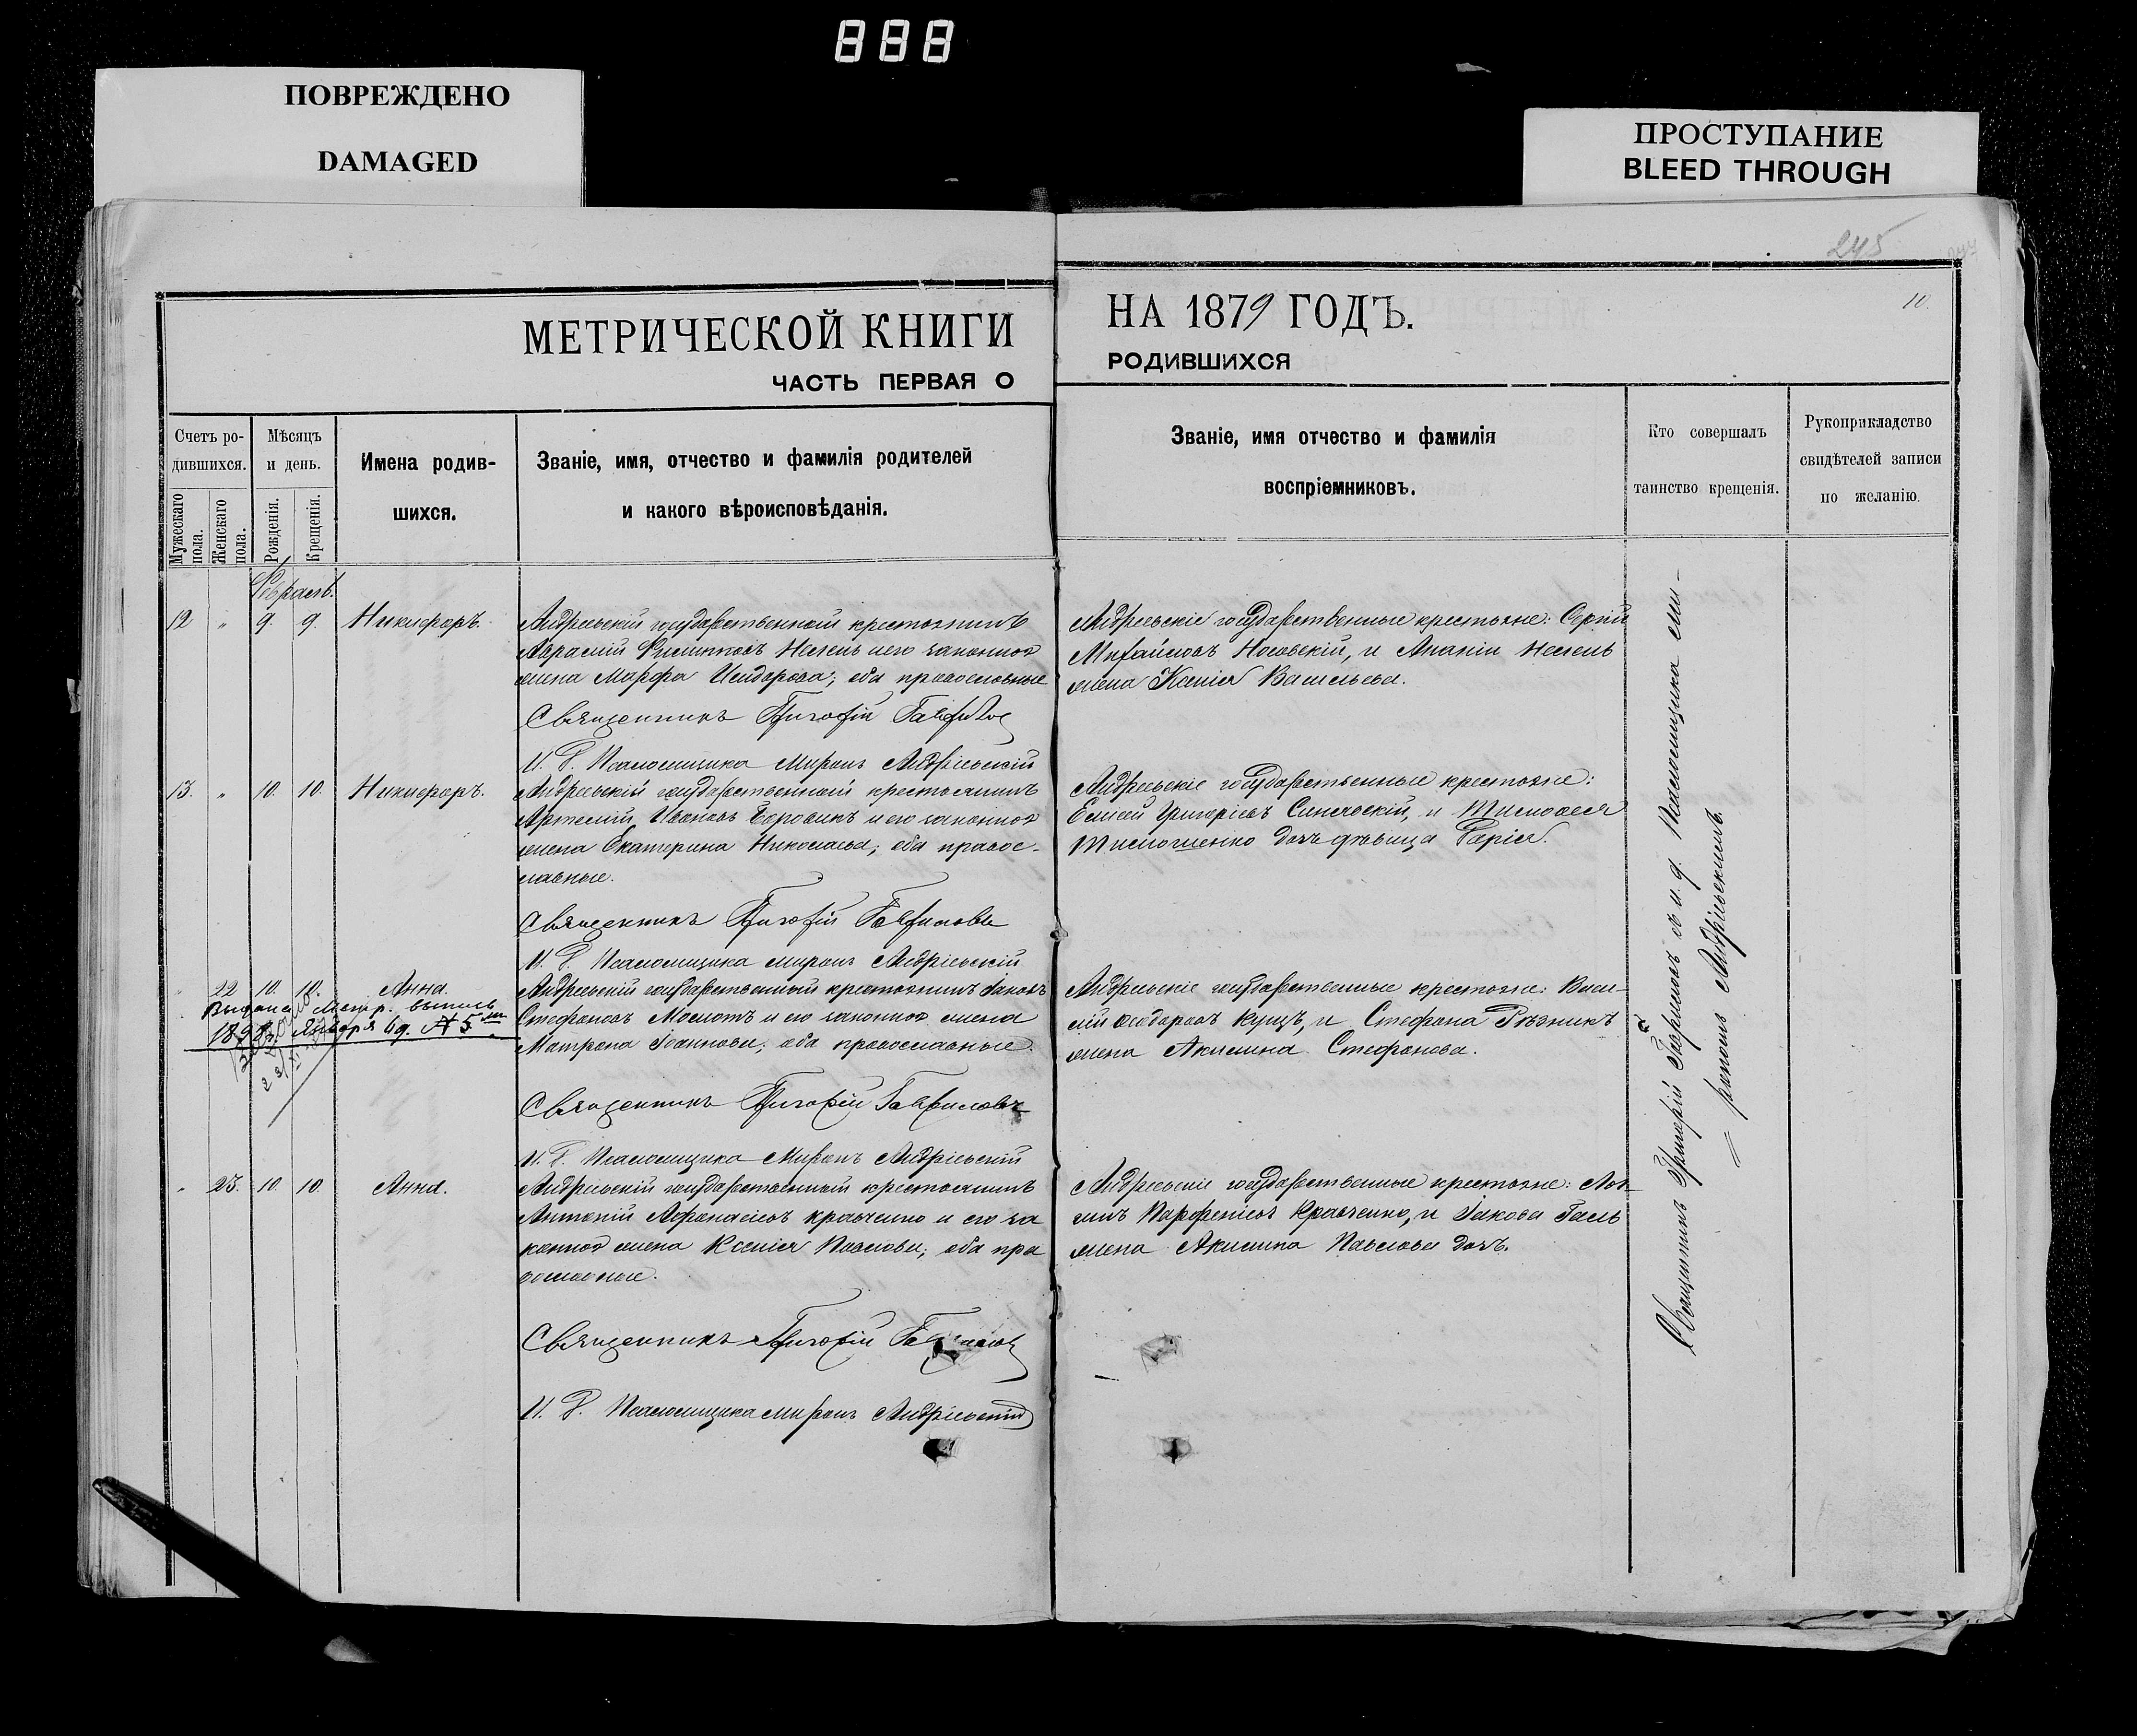 888
ПОВРЕЖДЕНО
DAMAGED
ПРОСТУПАНИЕ
BLEED THROUGH
245
10.
МЕТРИЧЕСКОЙ КНИГИ
НА 1879 ГОДЪ.
ЧАСТЬ ПЕРВАЯ О
РОДИВШИХСЯ
Счетъ ро-
дившихся.
Мужескаго пола.
Женскаго пола.
Мѣсяцъ
и день.
Рожденія.
Крещенія.
Имена родив-
шихся.
Званіе, имя, отчество и фамилія родителей
и какого вѣроисповѣданія.
Званіе, имя отчество и фамилія
воспріемниковъ.
Кто совершалъ
таинство крещенія.
Рукоприкладство
свидѣтелей записи
по желанію.
Февраль.
12 " 9. 9. Никифоръ.
Андреевскій государственный крестьянинъ
Несень и его законная
жена Марфа Исидорова; оба православные
Священникъ Григорій Гаврилов
И. Д. Псаломщика Миронъ Андріевскій
Андреевскіе государственные крестьяне: Сергій
Михайловъ Носовскій, и Ананіи Несень
жена Ксенія Васильева.
13. " 10. 10. Никифоръ.
Андреевскій государственный крестьянинъ
Артемій Ивановъ Боровикъ и его законная
жена Екатерина Николаева; оба правос-
лавные.
Священникъ Григорій Гавриловъ
И. Д. Псаломщика Миронъ Андріевскій
Андреевскіе государственные крестьяне:
Елисей Григоріевъ Синявскій, и Тимофея
Тимошенко дочь дѣвица Дарія.
" 22 10. 10. Анна.
Выдана Метр. выпись
189 Января 19. № 5
Андреевскій государственный крестьянинъ Іаковъ
Стефановъ Молотъ и его законная жена
Матрона Іоаннова; оба православные.
Священникъ Григорій Гавриловъ
И. Д. Псаломщика Миронъ Андріевскій
Андреевскіе государственные крестьяне: Васи-
лій Феодоровъ Куцъ, и Стефана Рѣзникъ
жена Акилина Стефанова.
" 23. 10. 10. Анна.
Андреевскій государственный крестьянинъ
Антоній Афанасіевъ Кравченко и его за
конная жена Ксенія Павлова; оба пра
вославные.
Священникъ Григорій Гаврилов
И. Д. Псаломщика Миронъ Андріевскій
Андреевскіе государственные крестьяне: Лон
гинъ Парфеніевъ Кравченко, и Іакова Галь
жена Акилина Павлова дочь.
Священникъ Григорій Гавриловъ съ и. д. Псаломщика Ми-
= рономъ Андріевскимъ.